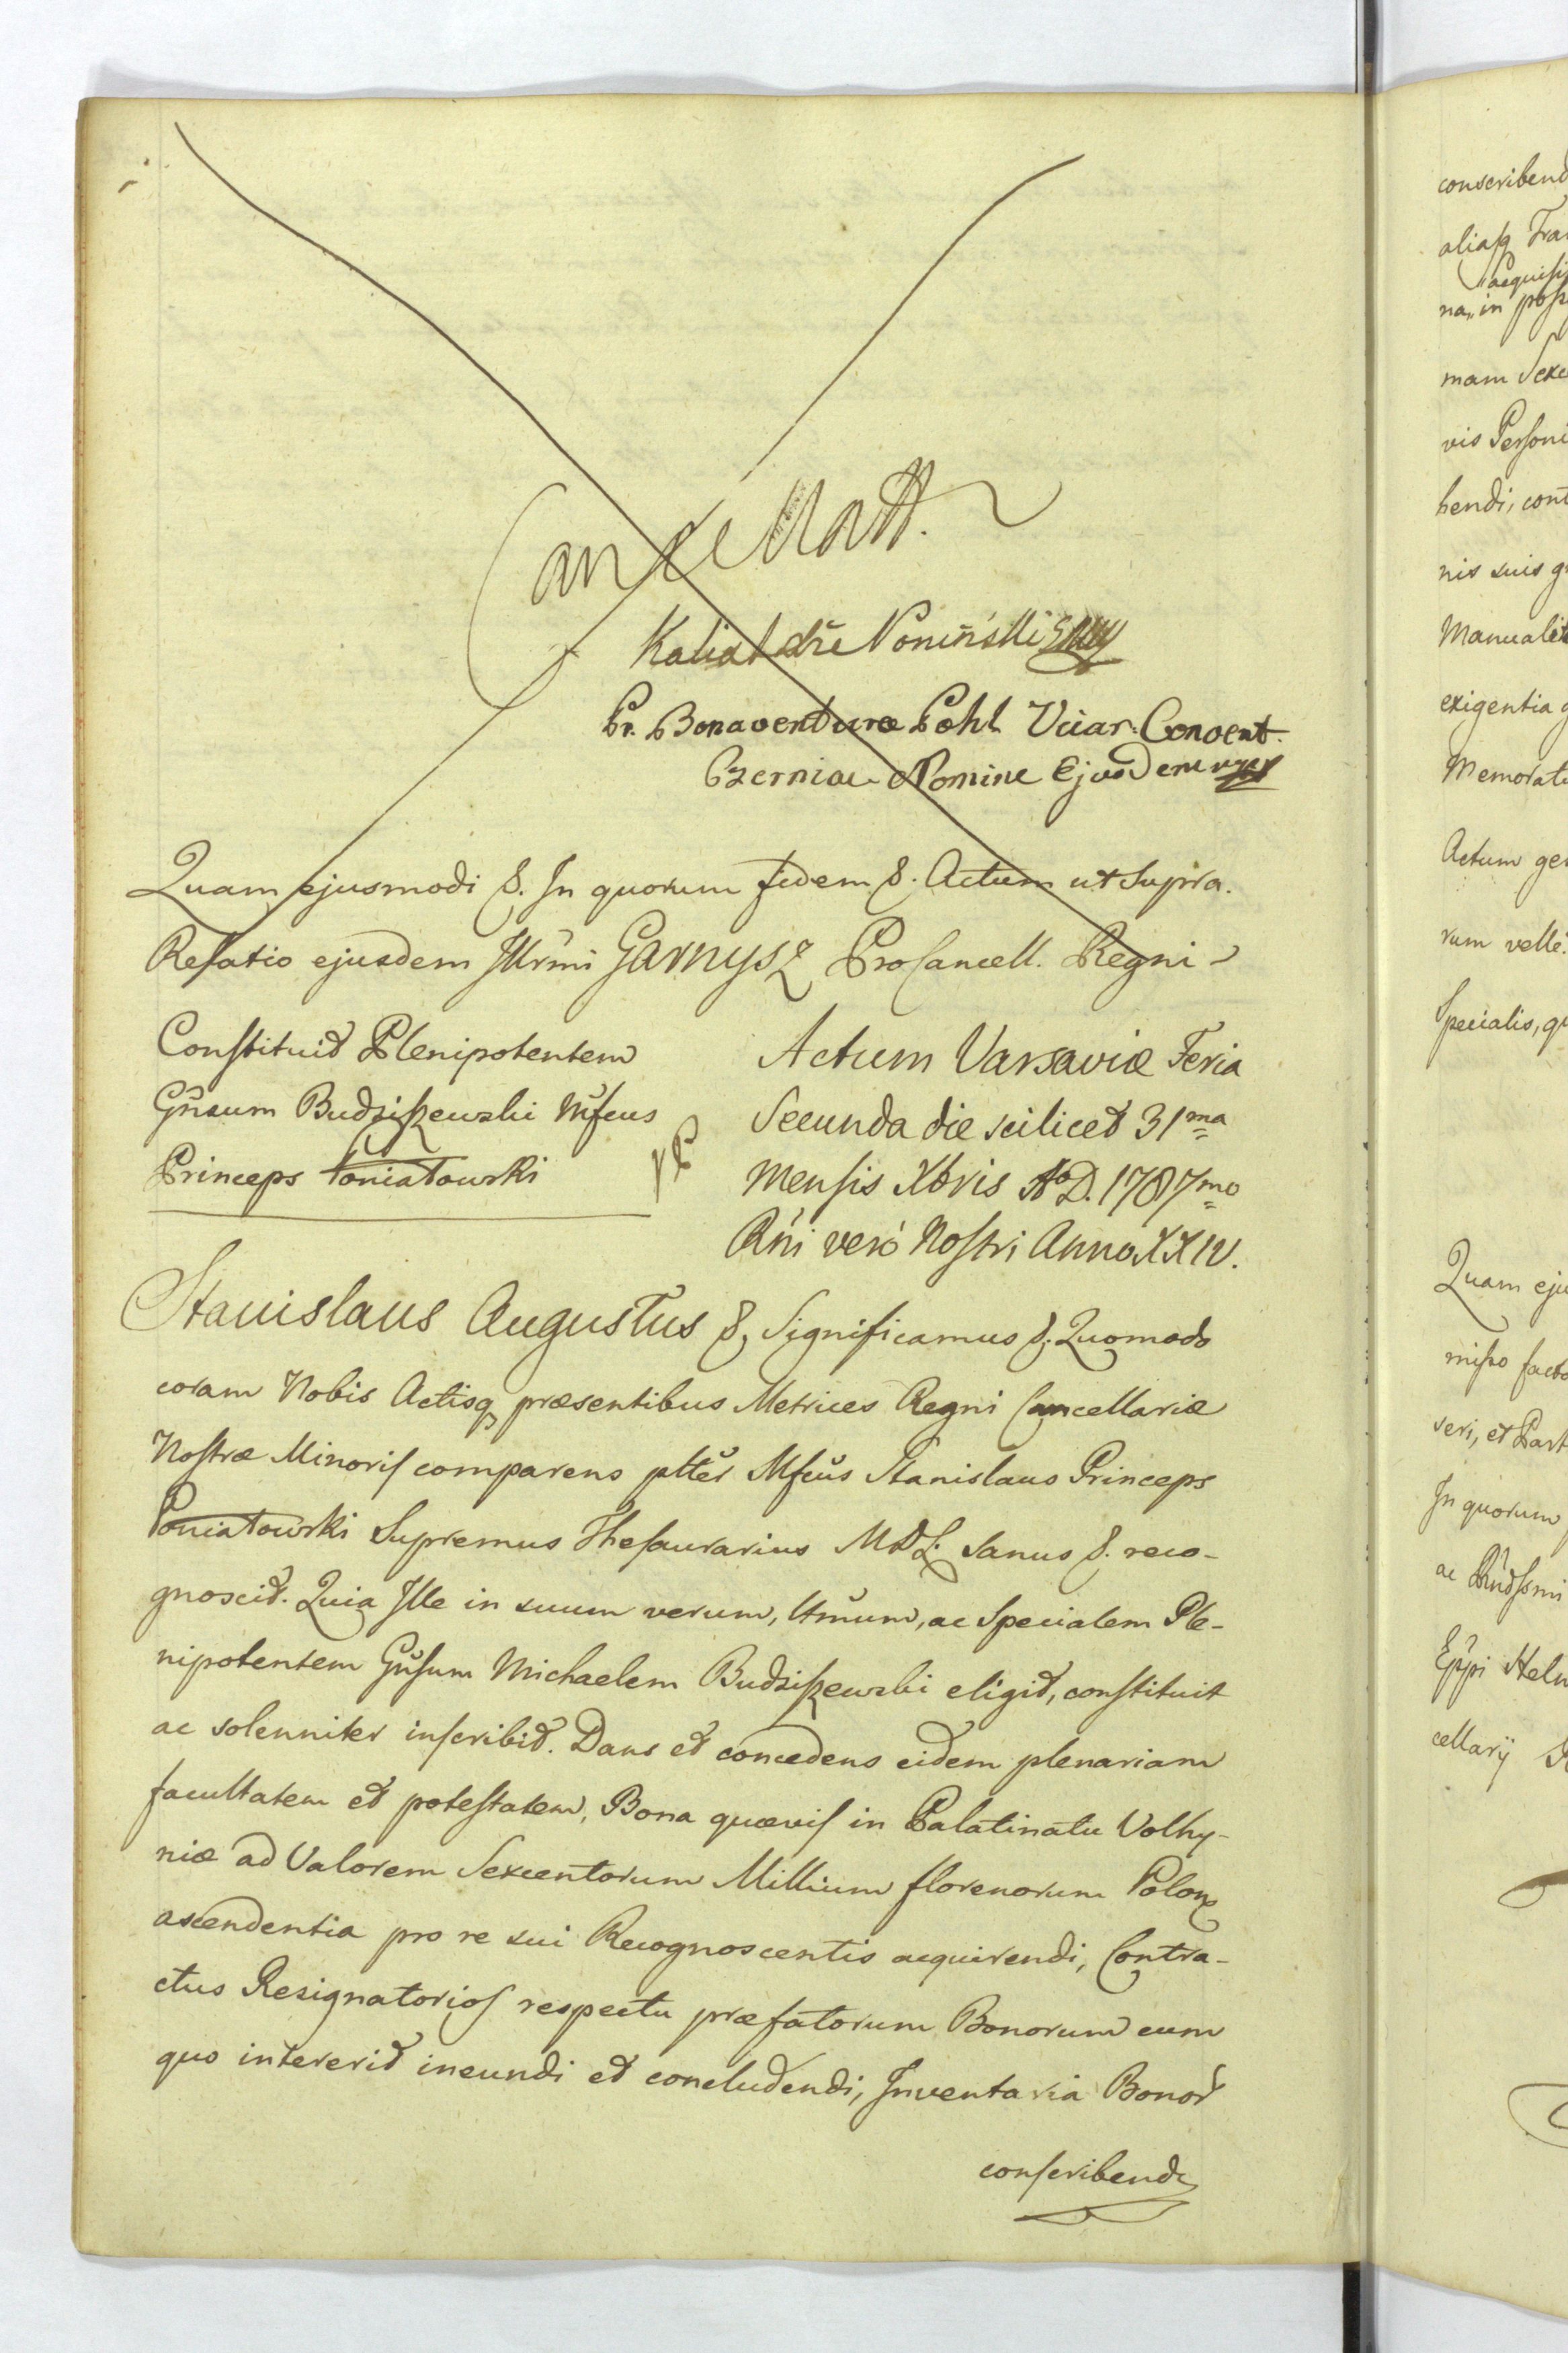 Cancellatt.
Kalixt dře Poniński
Pr. Bonaventura Pohl Vicar. Convent.
Czerniac Nomine Ejusdem
Quam ejusmodi &. In quorum fidem &. Actum ut Supra.
Relatio ejusdem Jllrmi Garnysz ProCancell. Regni
Constituit Plenipotentem
Gnsum Budziszewski Mfcus
Princeps Poniatowski
Actum Varsaviæ Feria
Secunda die scilicet 31ma
Mensis Xbris AoD. 1787mo
Rńi verò Nostri Anno XXIV.
Stanislaus Augustus &, Significamus &. Quomodo
coram Nobis Actisq præsentibus Metrices Regni Cancellariæ
Nostræ Minoris comparens pltěr Mfcus Stanislaus Princeps
Poniatowski Supremus Thesaurarius MDL. Sanus &. reco-
gnoscit. Quia Jlle in suum verum, ltmum, ac Specialem Ple-
nipotentem Gnsum Michaelem Budziszewski eligit, constituit
ac solenniter inscribit. Dans et concedens eidem plenariam
facultatem et potestatem, Bona quævis in Palatinatu Volhy-
niæ ad Valorem Sexcentorum Millium florenorum Polon
ascendentia pro re sui Recognoscentis acquirendi, Contra-
ctus Resignatorios respectu præfatorum Bonorum cum
quo intererit ineundi et concludendi, Inventaria Bonor
conscribendi
conscribend
aliasq Tra
acquisi
na, in poss
mam Sexc
vis Personi
hendi, cont
nis suis
Manualit
exigentia
Memorat
Actum ge
rum velle
Specialis, q
Quam eju
misso facto
seri, et Part
In quorum
ac
Eppi Helm
cellarij